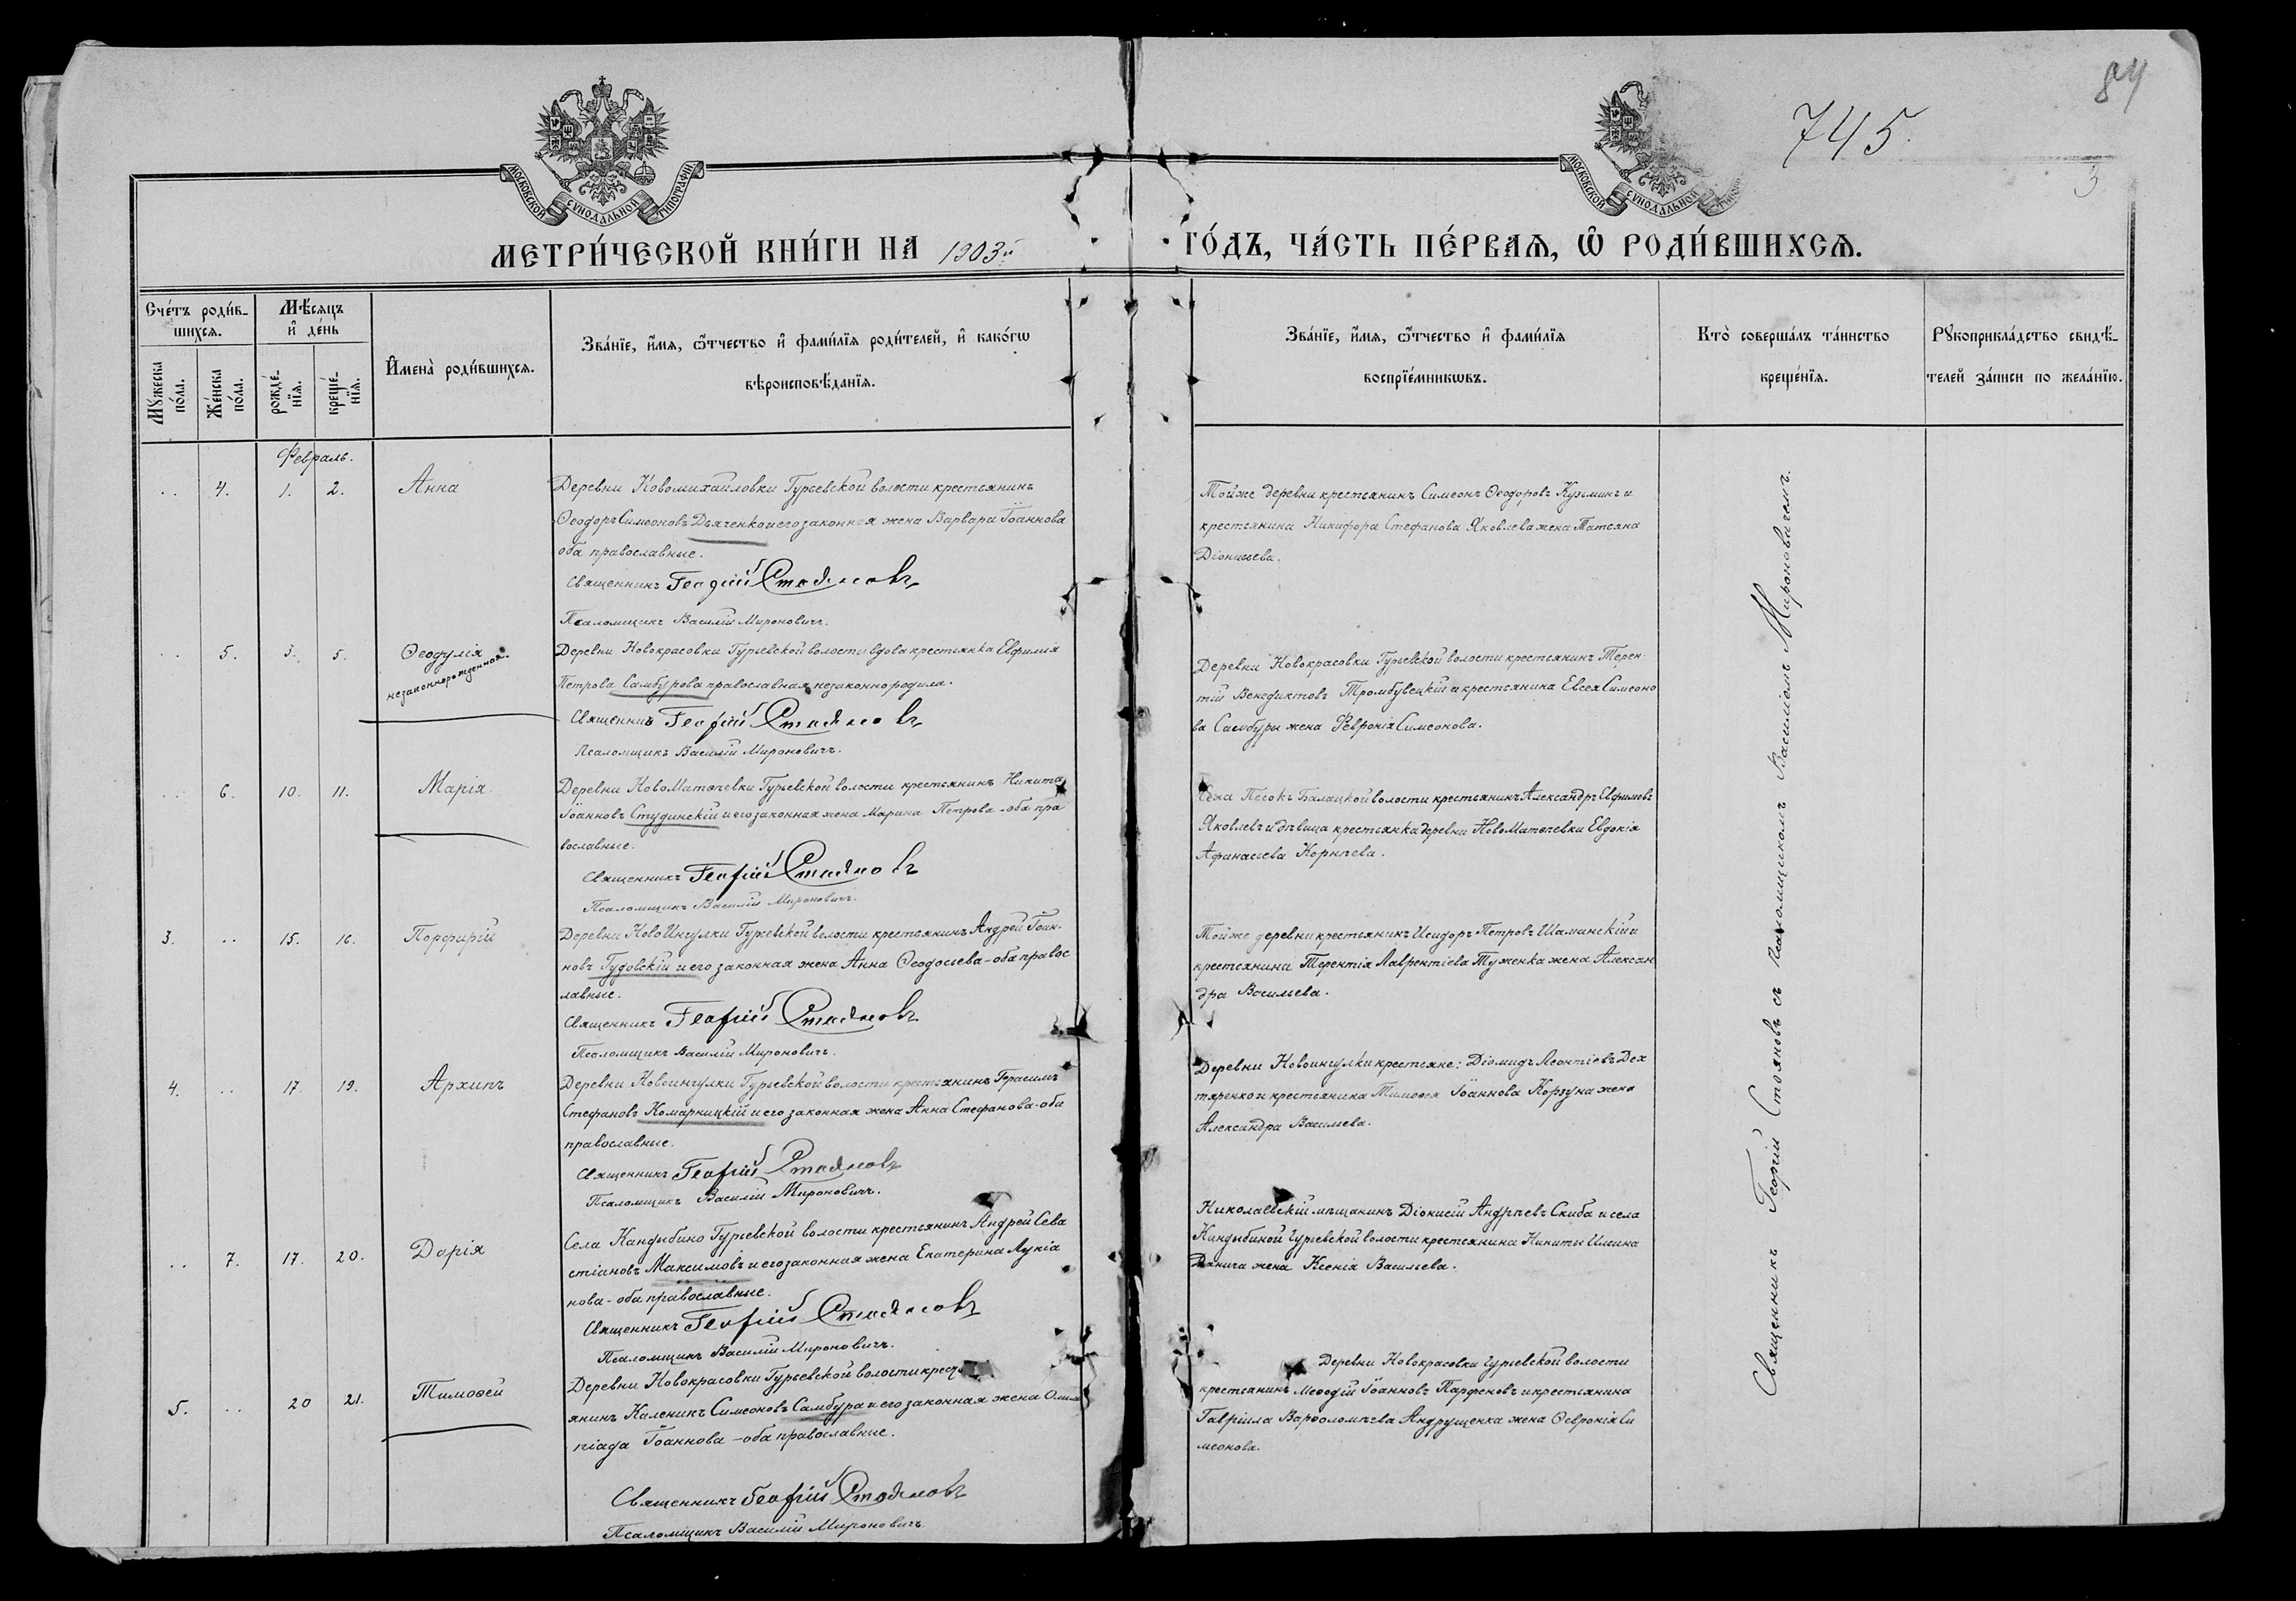 84
745.
3
МОСКОВСКОЙ СѴНОДАЛЬНОЙ ТИПОГРАФІИ
МОСКОВСКОЙ СѴНОДАЛЬНОЙ
МЕТРИ́ЧЕСКОЙ КНИ́ГИ НА 1903й ГО́ДЪ, ЧА́СТЬ ПЕ́РВАѦ, Ѡ҆ РОДИ́ВШИХСѦ.
Сче́тъ роди́в-
шихсѧ.
Мѣ́сѧцъ
и҆ де́нь
Мꙋжеска по́ла.
Же́нска по́ла.
рожде́-
нїѧ.
креще́-
нїѧ.
И҆мена̀ роди́вшихсѧ.
Зва́нїе, и҆́мѧ, ѻ҆́тчество и҆ фами́лїѧ роди́телей, и҆ како́гѡ
вѣроисповѣ́данїѧ.
Зва́нїе, и҆́мѧ, ѻ҆́тчество и҆ фами́лїѧ
воспрїе́мникѡвъ.
Кто̀ соверша́лъ та́инство
креще́нїѧ.
Рꙋкоприкла́дство свидѣ́-
телей за́писи по жела́нїю.
Февраль.
.. 4. 1. 2. Анна
Деревни Новомихайловки Гурьевской волости крестьянинъ
Ѳеодоръ Симеоновъ Дьяченко и его законная жена Варвара Іоаннова
оба православные.
Священникъ Георгій Стояновъ
Псаломщикъ Василій Мироновичъ.
Тойже деревни крестьянинъ Симеонъ Ѳеодоровъ Кузьминъ и
крестьянина Никифора Стефанова Яковлева жена Татьяна
Діонисьева.
.. 5. 3. 5. Ѳеодулія
незаконнорожденная.
Деревни Новокрасовки Гурьевской волости вдова крестьянка Евфимія
Петрова Самбурова православная незаконно родила.
Священникъ Георгій Стояновъ
Псаломщикъ Василій Мироновичъ.
Деревни Новокрасовки Гурьевской волости крестьянинъ Терен-
тій Венедиктовъ Тромбувецкій и крестьянина Евсея Симеоно
ва Самбуры жена Февронія Симеонова.
.. 6. 10. 11. Марія.
Деревни НовоМатвѣевки Гурьевской волости крестьянинъ Никита
Іоанновъ Студинскій и его законная жена Марина Петрова - оба пра
вославные.
Священникъ Георгій Стояновъ
Псаломщикъ Василій Мироновичъ.
Села Песокъ Балацкой волости крестьянинъ Александръ Евфимовъ
Яковлевъ и дѣвица крестьянка деревни НовоМатвѣевки Евдокія
Афанасьева Корнѣева.
3. .. 15. 16. Порфирій
Деревни НовоИнгулки Гурьевской волости крестьянинъ Андрей Іоан-
новъ Гудовскій и его законная жена Анна Ѳеодосьева - оба правос
лавные.
Священникъ Георгій Стояновъ
Псаломщикъ Василій Мироновичъ.
Тойже деревни крестьянинъ Исидоръ Петровъ Шаманскій и
крестьянина Терентія Лаврентіева Туженка жена Алексан
дра Васильева.
4. .. 17. 19. Архипъ
Деревни Новоингулки Гурьевской волости крестьянинъ Герасимъ
Стефановъ Комарницкій и его законная жена Анна Стефанова - оба
православные.
Священникъ Георгій Стояновъ
Псаломщикъ Василій Мироновичъ.
Деревни Новоингулки крестьяне: Діомидъ Леонтіевъ Дех
тяренко и крестьянина Тимоѳея Іоаннова Корзуна жена
Александра Васильева.
.. 7. 17. 20. Дарія
Села Кандыбино Гурьевской волости крестьянинъ Андрей Сева
стіановъ Максимовъ и его законная жена Екатерина Лукіа
нова - оба православные.
Священникъ Георгій Стояновъ
Псаломщикъ Василій Мироновичъ.
Николаевскій мѣщанинъ Діонисій Андрѣевъ Скиба и села
Кандыбиной Гурьевской волости крестьянина Никиты
жена Ксенія Васильева.
5. .. 20 21. Тимоѳей
Деревни Новокрасовки Гурьевской волости крест
янинъ Каленикъ Симеоновъ Самбура и его законная жена Олим
піада Іоаннова - оба православные.
Священникъ Георгій Стояновъ
Псаломщикъ Василій Мироновичъ
Деревни Новокрасовки Гурьевской волости
крестьянинъ Меѳодій Іоанновъ Парфеновъ и крестьянина
Гавріила Варѳоломѣева Андрущенка жена Ѳевронія Си
меонова.
Священникъ Георгій Стояновъ съ псаломщикомъ Василіемъ Мироновичемъ.